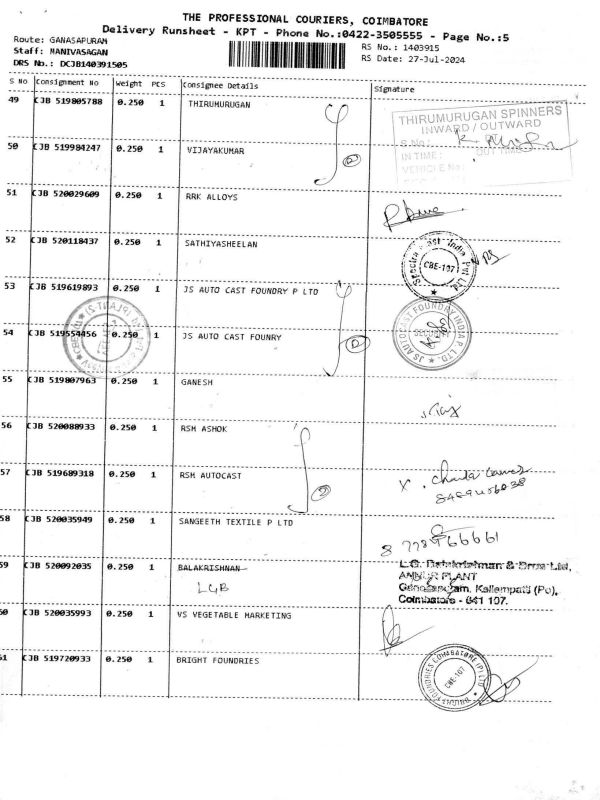 THE PROFESSIONAL COURIERS, COIMBATORE
Delivery Runsheet - KPT - Phone No.:0422-3505555 - Page No.:5
Route: GANASAPURAM
Staff: MANIVASAGAN
DRS No.: DCJB140391505
RS No.: 1403915
RS Date: 27-Jul-2024
S No Consignment No Weight PCS Consignee Details Signature
49 CJB 519805788 0.250 1 THIRUMURUGAN
THIRUMURUGAN SPINNERS
INWARD / OUTWARD
S.No.:
IN TIME: OUT TIME
VEHICLE No:
50 CJB 519984247 0.250 1 VIJAYAKUMAR
2
51 CJB 520029609 0.250 1 RRK ALLOYS
52 CJB 520118437 0.250 1 SATHIYASHEELAN
CBE-107
53 CJB 519619893 0.250 1 JS AUTO CAST FOUNDRY P LTD
54 CJB 519554456 0.250 1 JS AUTO CAST FOUNRY
2
JS AUTOCAST FOUNDRY INDIA P LTD.
SECURITY
55 CJB 519807963 0.250 1 GANESH
56 CJB 520088933 0.250 1 RSM ASHOK
57 CJB 519689318 0.250 1 RSM AUTOCAST
2
58 CJB 520035949 0.250 1 SANGEETH TEXTILE P LTD
59 CJB 520092035 0.250 1 BALAKRISHNAN
LGB
L.G. Balakrishnan & Bros Ltd,
ANNUR PLANT
Ganesapuram, Kallempatti (Po),
Coimbatore - 641 107.
60 CJB 520035993 0.250 1 VS VEGETABLE MARKETING
61 CJB 519720933 0.250 1 BRIGHT FOUNDRIES
BRIGHT FOUNDRIES COIMBATORE (P) LTD
CBE-107